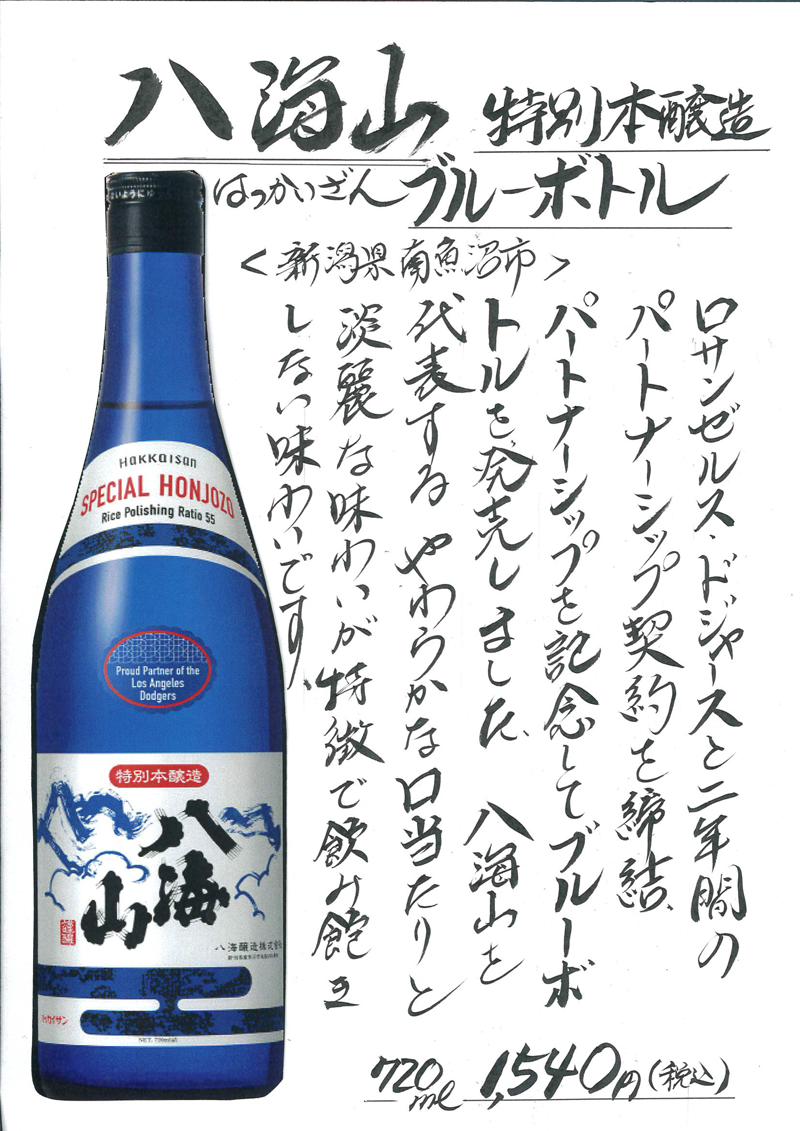 八海山 特別本醸造
はっかいざん ブルーボトル
<新潟県南魚沼市>
ロサンゼルス・ドジャースと二年間の
パートナーシップ契約を締結、
パートナーシップを記念してブルーボ
トルを発売しました。八海山を
代表する やわらかな口当たりと
淡麗な味わいが特徴で飲み飽き
しない味わいです。
720ml 1,540円(税込)
HaKKaISan
SPECIAL HONJOZO
Rice Polishing Ratio 55
Proud Partner of the
Los Angeles
Dodgers
特別本醸造
八海山
八海醸造株式会社
ハッカイサン